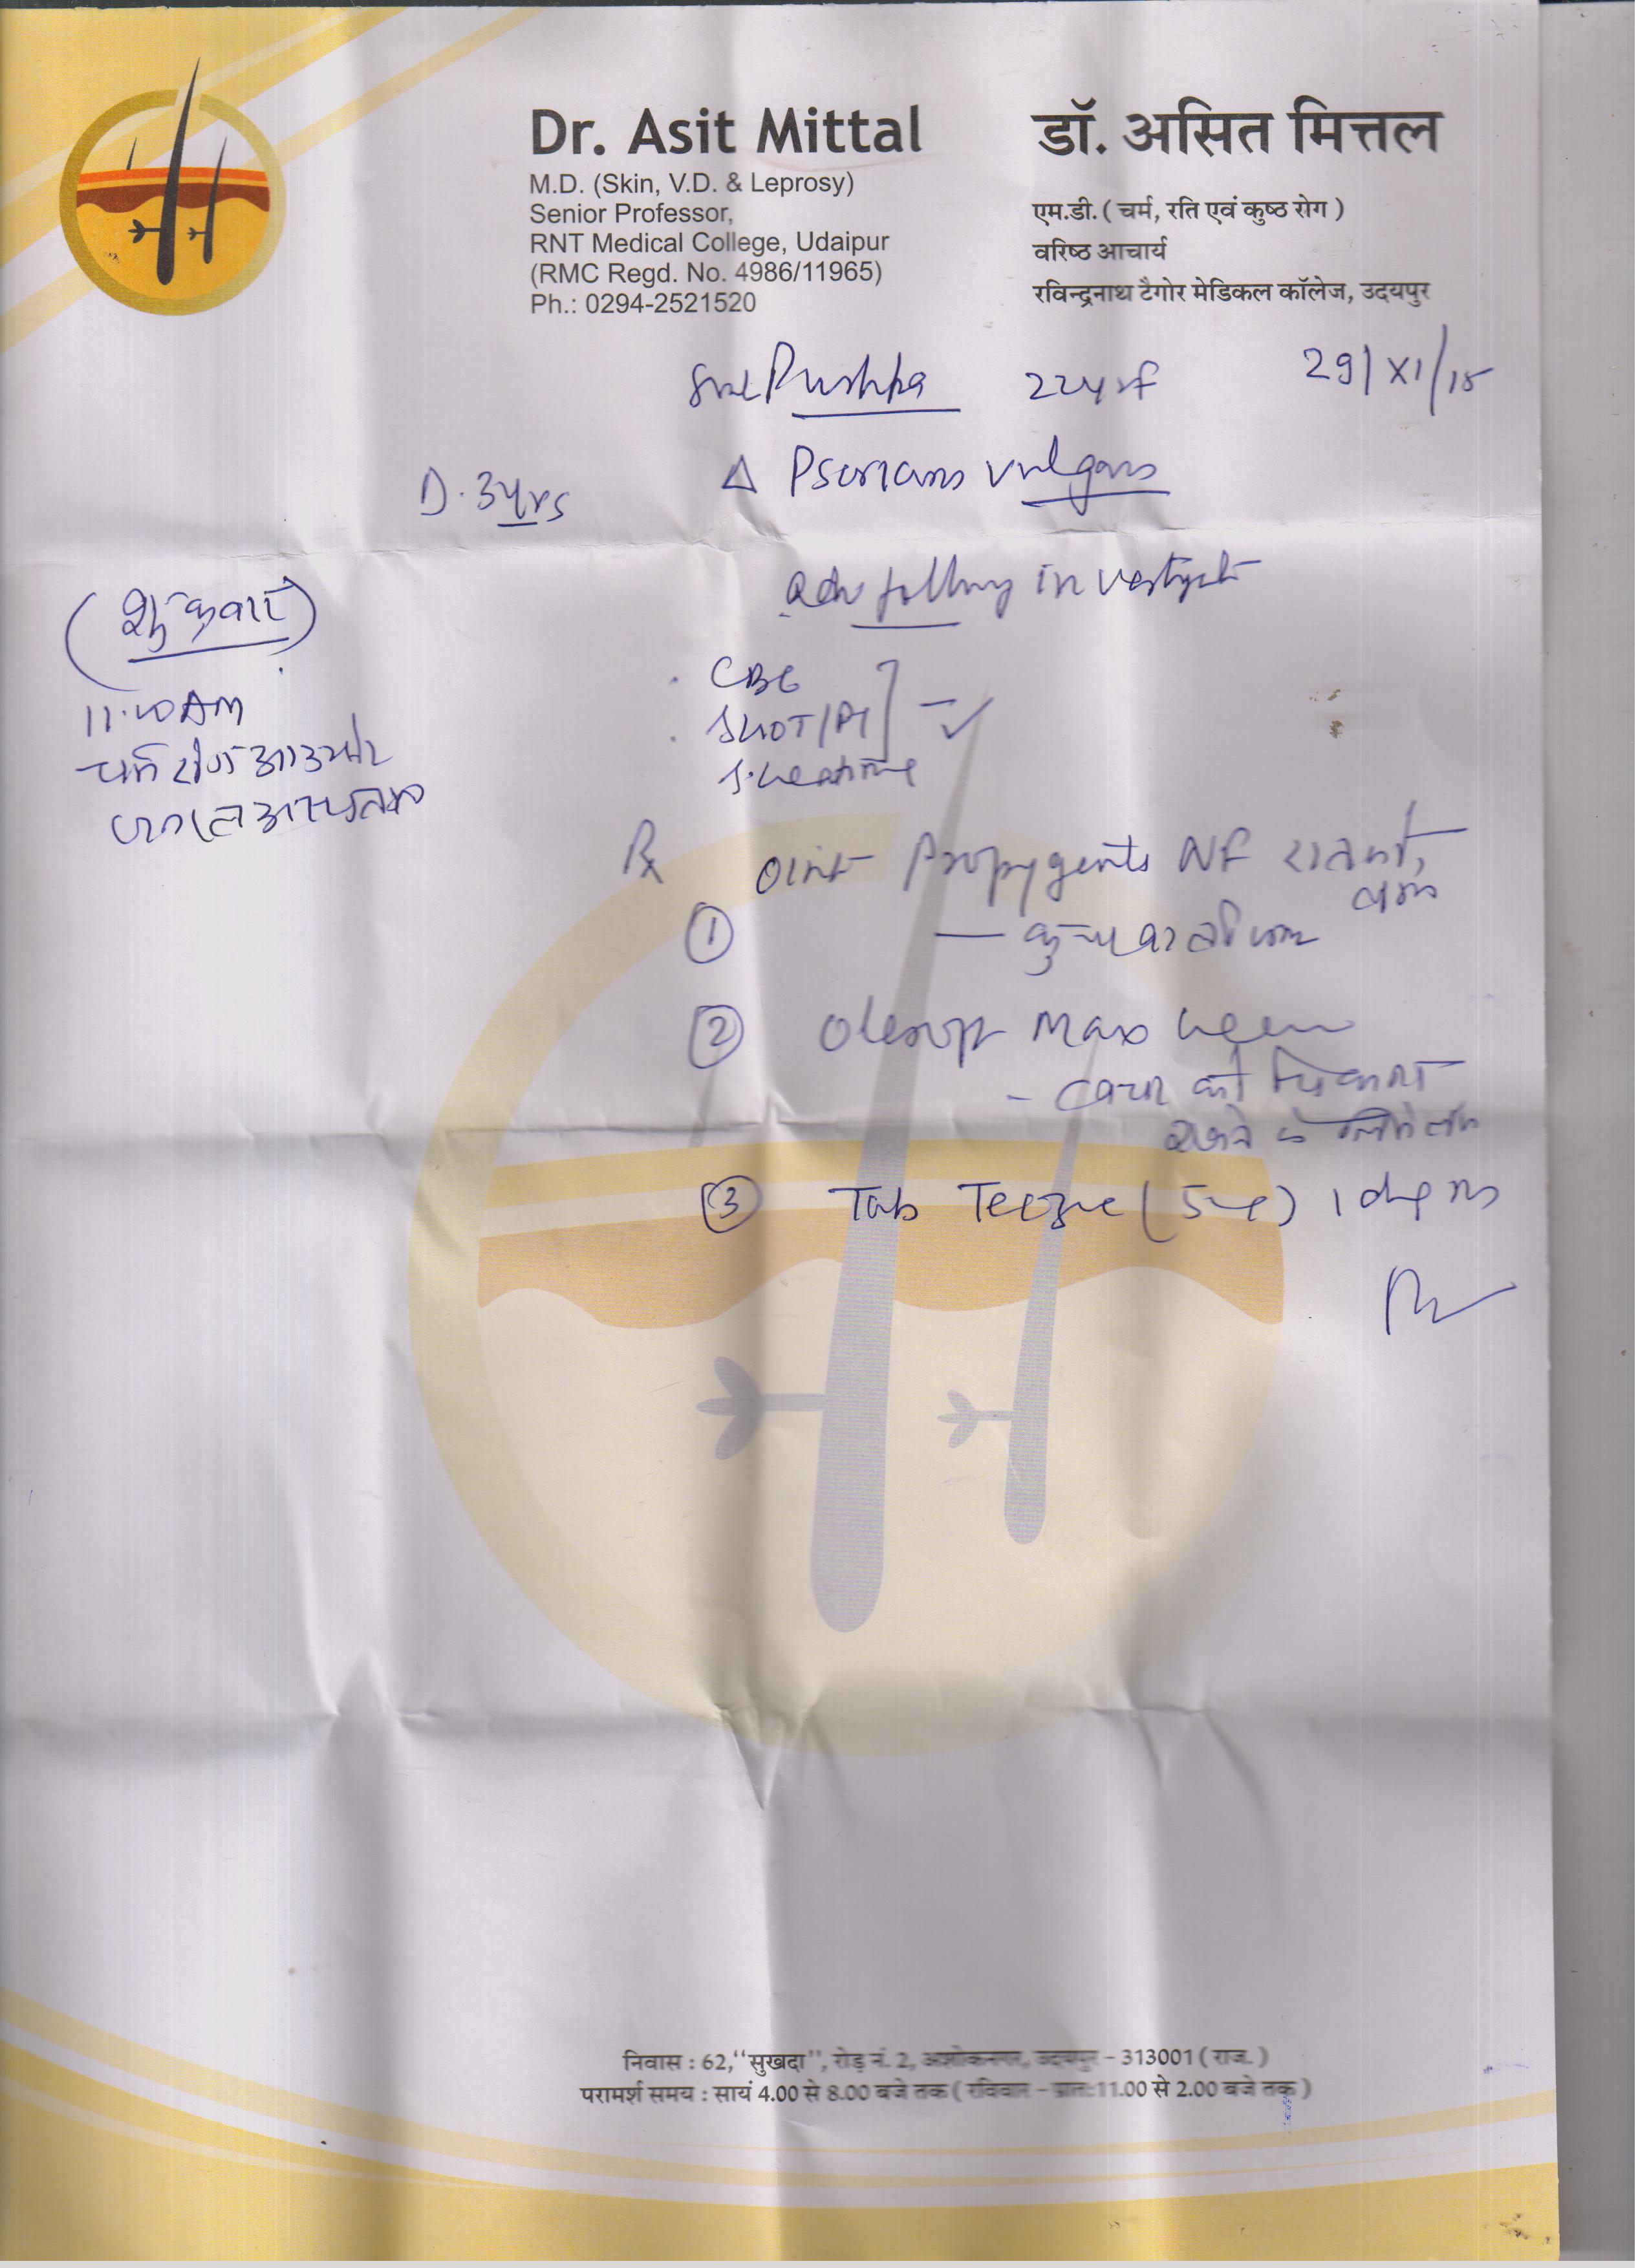 Dr. Asit Mittal
M.D. (Skin, V.D. & Leprosy)
Senior Professor,
RNT Medical College, Udaipur
(RMC Regd. No. 4986/11965)
Ph.: 0294-2521520
डॉ. असित मित्तल
एम.डी. ( चर्म, रति एवं कुष्ठ रोग )
वरिष्ठ आचार्य
रविन्द्रनाथ टैगोर मेडिकल कॉलेज, उदयपुर
Pushpa 22yrF 29/XI/18
D. 3yrs
Δ Psoriasis vulgaris
Adv following investigat
(शुक्रवार)
11.00AM
चर्म रोग आउटडोर
CBC
SGOT/PT
S. Creatinine
Rx Oint Propygenta NF
1
2 Max Cream
- त्वचा को
3 Tab Teczine (5mg) 1
निवास : 62,“सुखदा”, रोड़ नं. 2, अशोकनगर, उदयपुर – 313001 ( राज. )
परामर्श समय : सायं 4.00 से 8.00 बजे तक ( रविवार – प्रात:11.00 से 2.00 बजे तक )